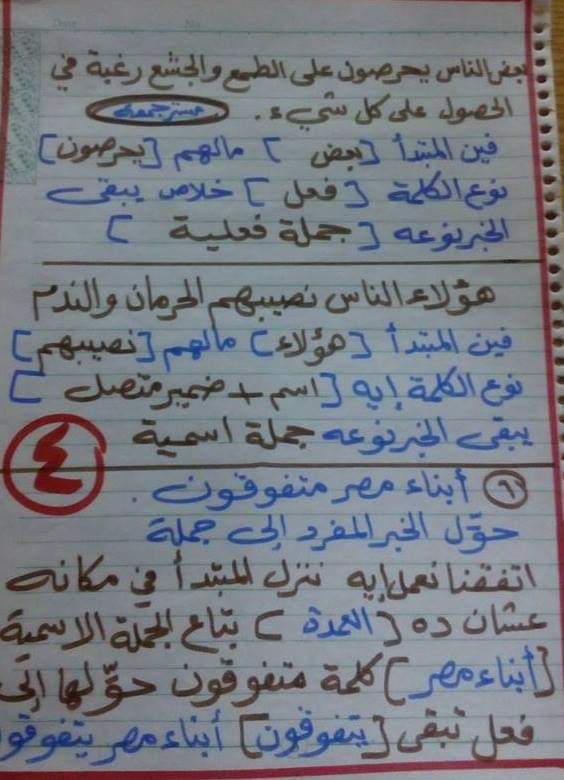 بعض الناس يحرصون على الطمع والجشع رغبة في
الحصول على كل شيء. مستر جمعه
فين المبتدأ [بعض] مالهم [يحرصون]
نوع الكلمة [فعل] خلاص يبقى
الخبر نوعه [جملة فعلية]
هؤلاء الناس نصيبهم الحرمان والندم
فين المبتدأ [هؤلاء] مالهم [نصيبهم]
نوع الكلمة إيه [اسم + ضمير متصل]
يبقى الخبر نوعه جملة اسمية
٤
٦ أبناء مصر متفوقون.
حوّل الخبر المفرد إلى جملة
اتفقنا نعمل إيه ننزل المبتدأ في مكانه
عشان ده [العمدة] بتاع الجملة الاسمية
[أبناء مصر] كلمة متفوقون حوّلها إلى
فعل تبقى [يتفوقون] أبناء مصر يتفوقو